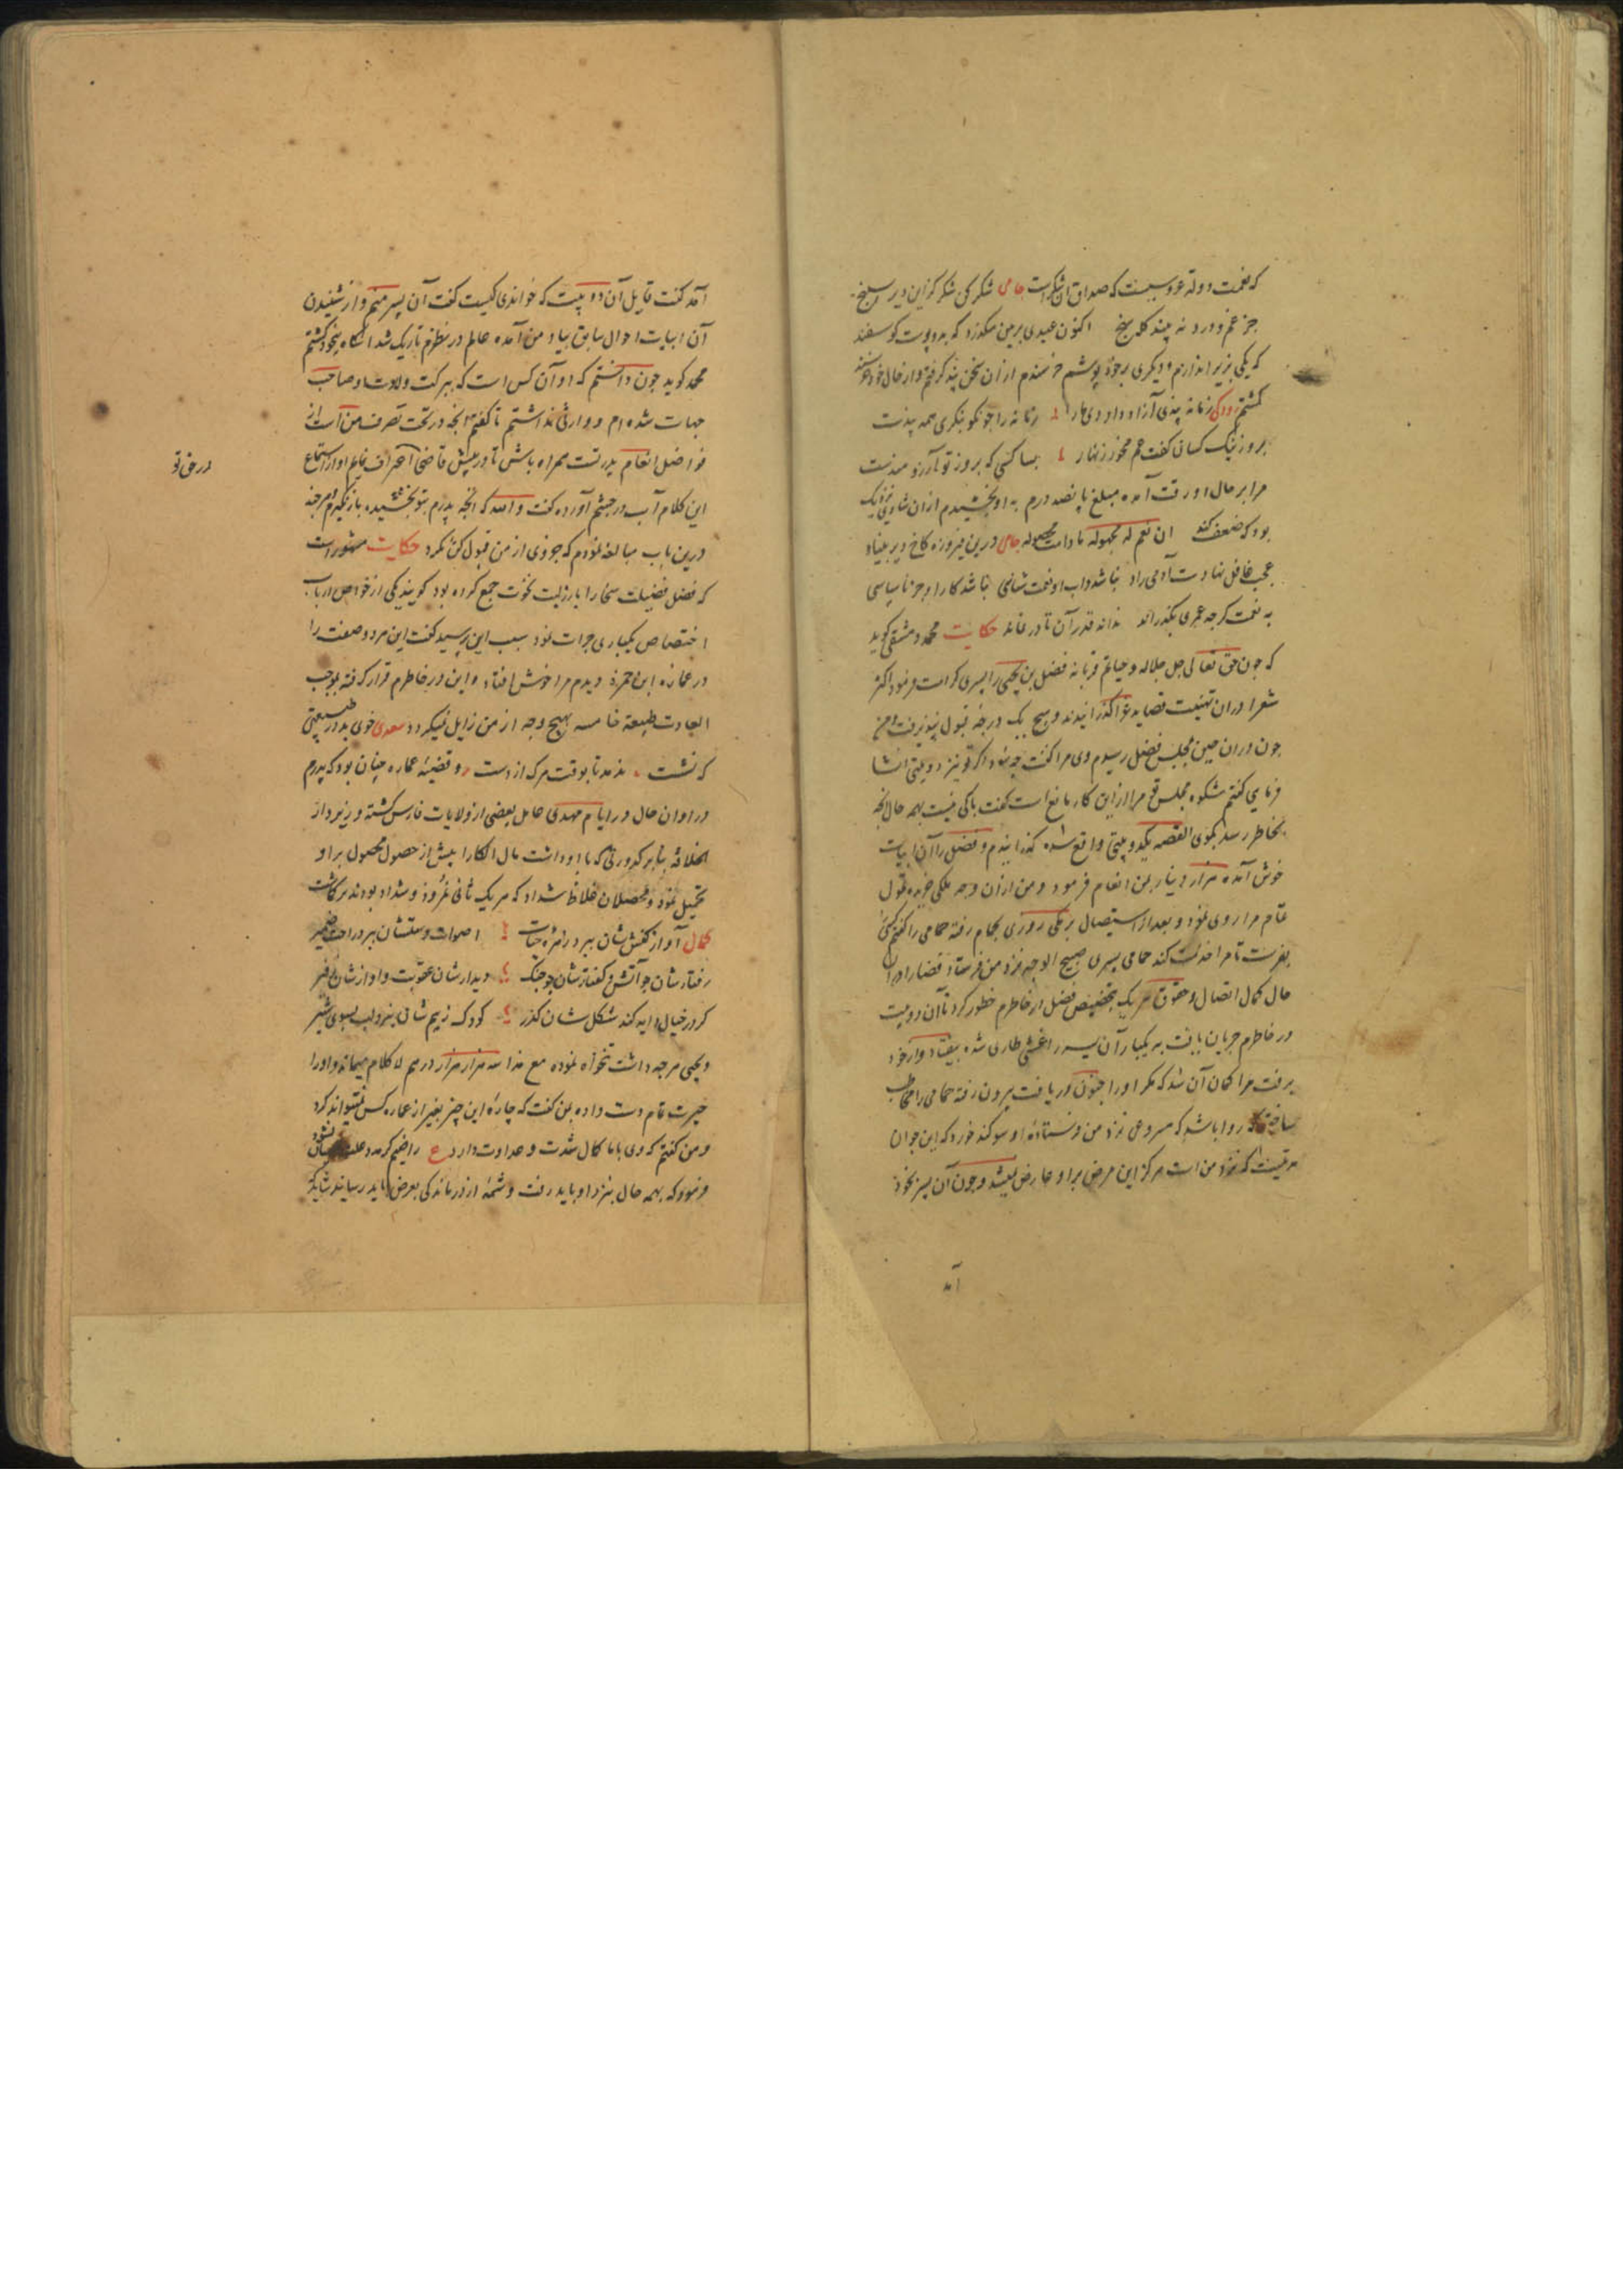 که نعمت دولة عروسیست که صداق آن شکر است جامی شکر کن شکر که زین دیر سپنج
جز غم و درد نه بیند کله سنج اکنون عیدی بر من میگذرد که بدو پوست کوسفند
که یکی بزیر اندازم و دیگری بر خود پوشم خرسندم از آن سخن پند گرفتم و از حال خود خرسند
گشتم رودکی زمانه پندی آزاد وار داد مرا زمانه را چو نکو بنگری همه پندست
بروز نیک کسان گفت غم مخور زنهار بسا کسی که بروز تو آرزومندست
مرا بر حال او رقت آمده مبلغ پانصد درم به او بخشیدم از آن شادی نزدیک
بود که ضعف کند ان نعم له مجهولة ما دامت محصولة جامی درین فیروزه کاخ دیر بنیاد
عجب غافل نهادست آدمی زاد نباشد داب او نعمت شناسی نباشد کار او جز ناسپاسی
به نعمت گرچه عمری بگذراند نداند قدر آن تا در نماند حکایت محمد دمشقی گوید
که چون حق تعالی جل جلاله و فضل بن یحیی را پسری کرامت فرمود اکثر
شعرا در آن تهنیت قصاید غرا گذرانیدند و هیچ یک درجه قبول نپذیرفت و من
چون در آن حین بمجلس فضل رسیدم وی مرا گفت چه شود اگر تو نیز دو بیتی انشا
فرمایی گفتم شکوه مجلس تو مرا از این کار مانع است گفت باکی نیست بهمه حال آنچه
بخاطر رسد بگوی القصه یکدو بیتی واقع شده گذرانیدم و فضل را آن ابیات
خوش آمده هزار دینار بمن انعام فرمود و من از آن وجه ملکی خریده تمول
تمام مرا روی نمود و بعد از استیصال برمکی روزی بحمام رفته حمامی را گفتم کسی
بفرست تا مرا خدمت کند حمامی پسری صبیح الوجه نزد من فرستاد قضا را در آن
حال کمال اتصال و حقوق برمک بتخصیص فضل در خاطرم خطور کرد تا آن دو بیت
در خاطرم جریان یافت به یکبار آن پسر را غشی طاری شده بیفتاد و از خود
برفت مرا گمان آن شد که مگر او را جنون دریافت بیرون رفته حمامی را مخاطب
ساختم که روا باشد که مصروعی نزد من فرستاده او سوگند خورد که این جوان
مدتیست که نزد من است هرگز این مرض بر او عارض نمیشد و چون آن پسر بخود
آمد
آمد گفت قایل آن دو بیت که خواندی کیست گفت آن پسر منم و از شنیدن
آن ابیات احوال سابق بیاد من آمده عالم در نظرم تاریک شد آنگاه بیخود گشتم
محمد گوید چون دانستم که او آن کس است که ببرکت ولادت او صاحب
جهات شده‌ام و وارثی نداشتم تا گفتم آنچه در تحت تصرف من است از
فواضل انعام پدر تست همراه باش تا در پیش قاضی اعتراف نمایم او از استماع
در حق تو
این کلام آب در چشم آورده گفت والله که آنچه پدرم بتو بخشیده باز نگیرم و هر چند
درین باب مبالغه نمودم که جزوی از من قبول کن نکرد حکایت مشهور است
که فضل فضیلت سخا را با رذیلت نخوت جمع کرده بود گویند یکی از خواص ارباب
اختصاص یکباری جرات نمود سبب این پرسید گفت این هر دو صفت را
در عمارة ابن حمزه دیدم مرا خوش افتاد و این در خاطرم قرار گرفته بموجب
العادت طبیعة خامسه بهیچ وجه از من زایل نمیگردد سعدی خوی بد در طبیعتی
که نشست ندهد تا بوقت مرگ از دست و قضیه عماره چنان بود که پدرم
در اوان حال در ایام مهدی عامل بعضی از ولایات فارس گشته و زیر دار
الخلافه بنابر کدورتی که با او داشت مال آنکار را پیش از حصول محصول بر او
تحمیل نمود و محصلان غلاظ شداد که هر یک ثانی نمرود و شداد بودند بر گماشت
کمال آواز کفش‌شان ببرد زهره حیات اصوات و مشتشان ببرد راحت ضمیر
رفتارشان چو آتش و گفتارشان چو جنگ دیدارشان عقوبت و آوازشان نفیر
گر در خیال دایه کند شکل‌شان گذر کودک ز بیم شان نبرد لب بسوی شیر
و یحیی هر چه داشت تنخواه نموده مع هذا سه هزار هزار درهم لا کلام میماند و او را
حیرت تمام دست داده بمن گفت که چاره این چیز بغیر از عماره کس نمیتواند کرد
و من گفتم که وی با ما کمال شدت و عداوت دارد ع
فرمود که بهمه حال بنزد او باید رفت و شمه از درماندگی بعرض باید رسانید شاید که